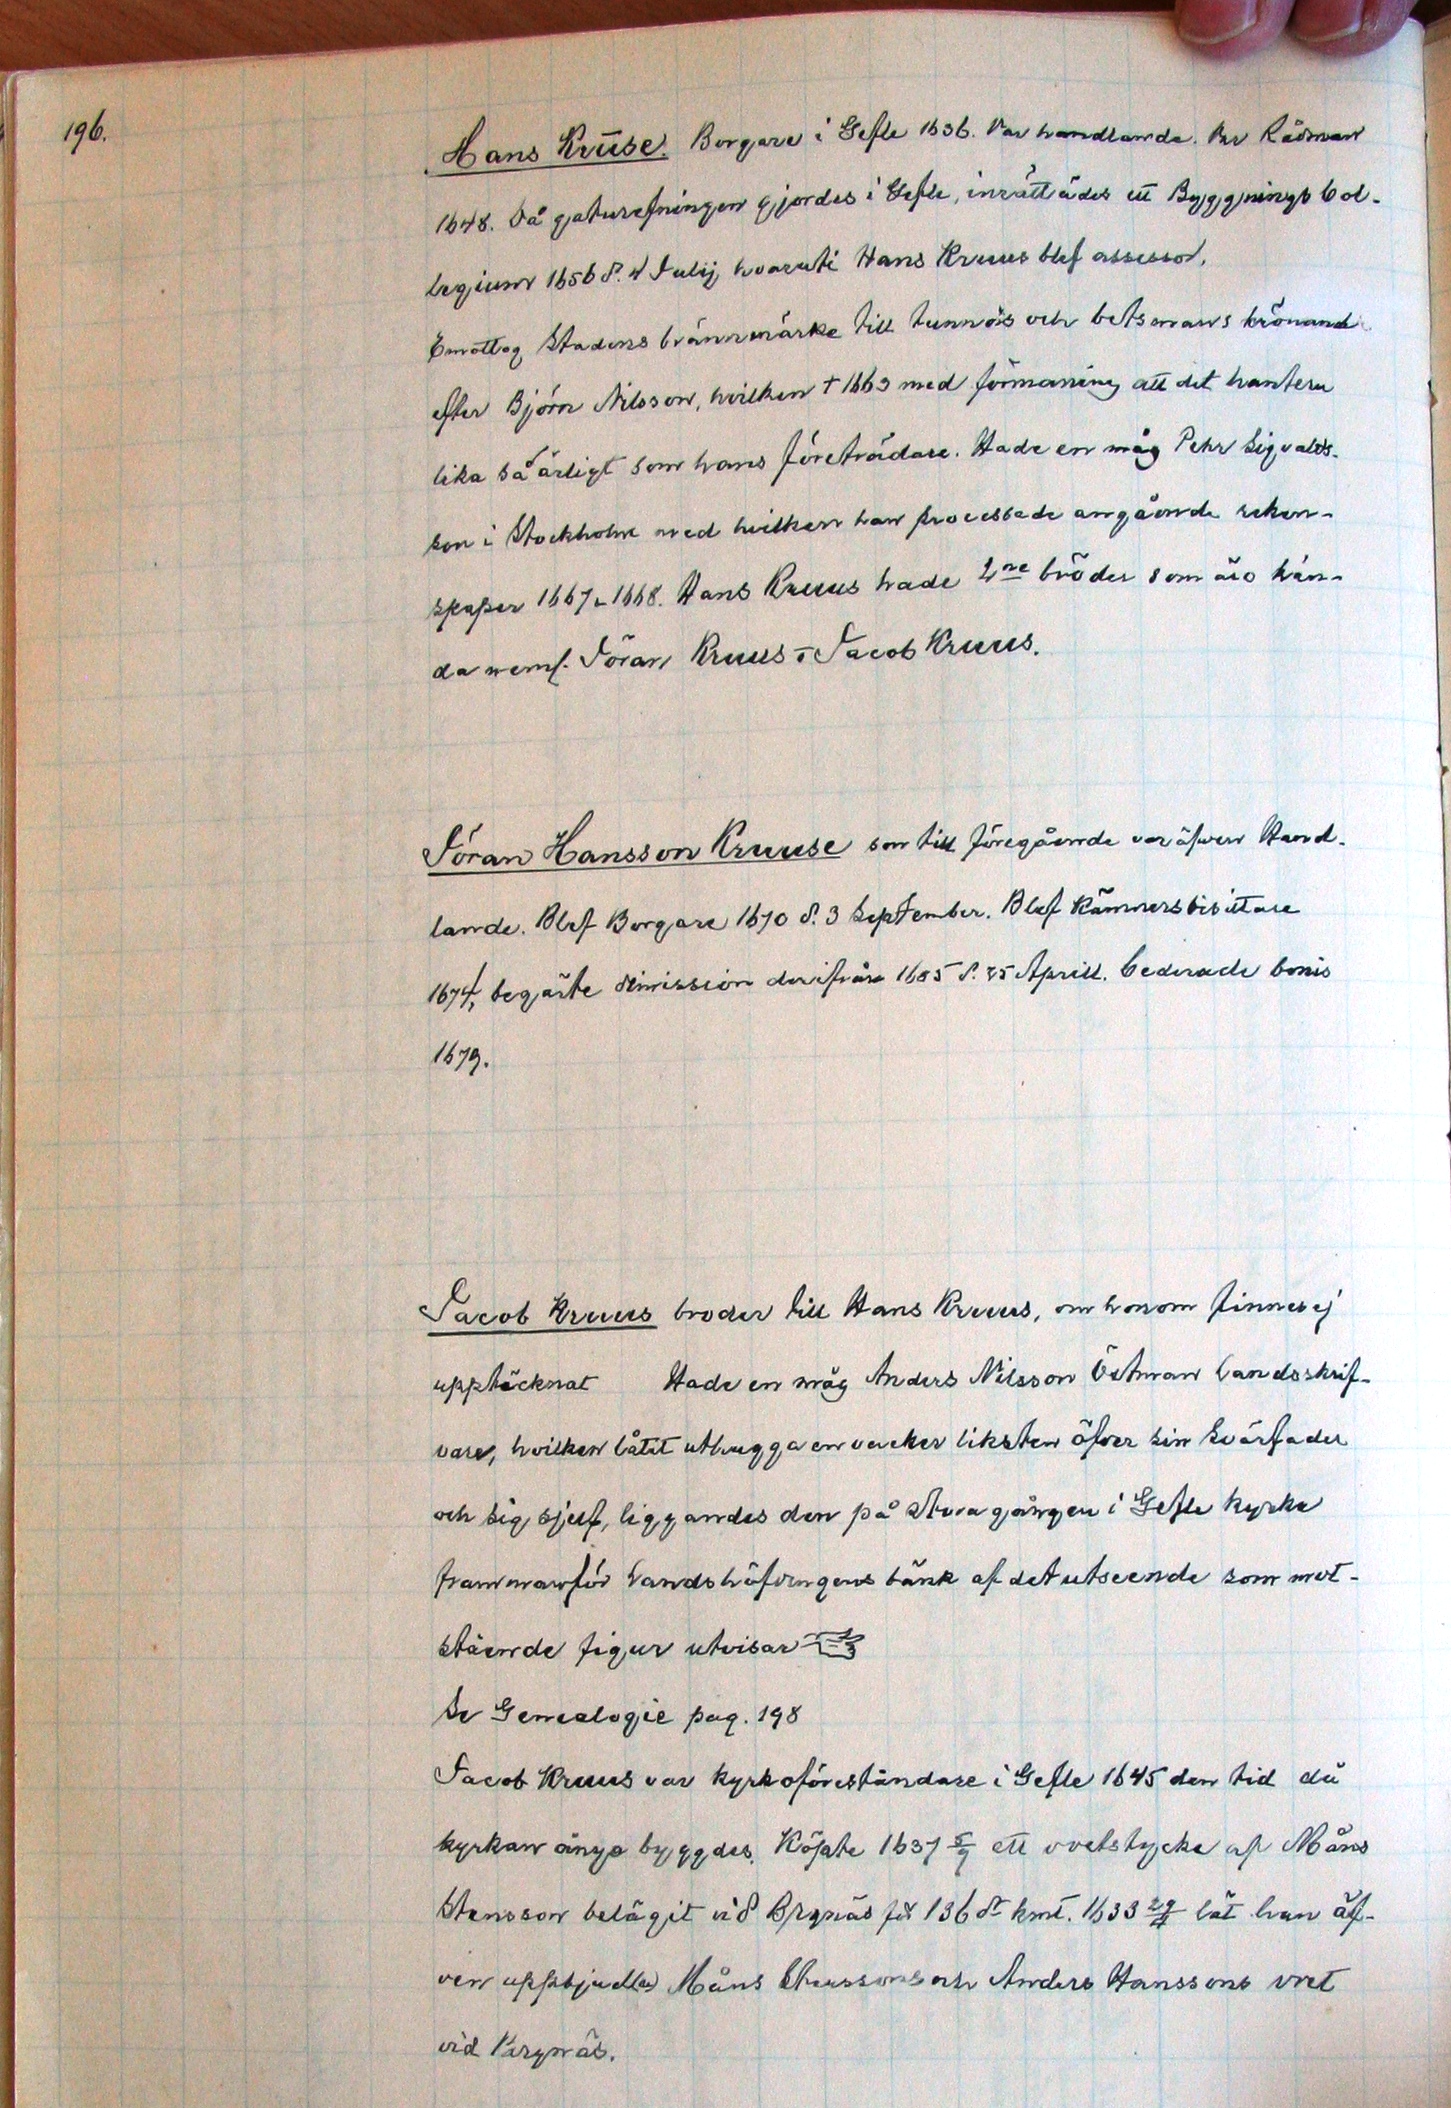 196.
Hans Krüse. Borgare i Gefle 1636. Var handlande. Var Rådman
1648. Då gaturefningen gjordes i Gefle, inrättades ett Byggnings Col-
legium 1656 d. 4 Julij hvaruti Hans Kruus blef assessor.
Emottog Stadens brännmärke till tunnors och betsmans krönande
efter Björn Nilsson, hvilken † 1663 med förmaning att det hantera
lika så ärligt som hans företrädare. Hade en måg Pehr Sigvalds-
son i Stockholm med hvilken han processade angående reken-
skaper 1667 1668. Hans Kruus hade 2ne bröder som äro kän-
da neml. Jöran Kruus o Jacob Kruus.
Jöran Hansson Kruuse son till föregående var äfven Hand-
lande. Blef Borgare 1670 d. 3 September. Blef Kämnersvisitare
1674, begärte dimission derifrån 1685 d. 25 Aprill. Cederade bonis
1679.
Jacob Kruus broder till Hans Kruus, om honom finnes ej
upptäcknat Hade en måg Anders Nilsson Östman Landsskrif-
vare, hvilken låtit uthugga en vacker liksten öfver sin Svärfader
och sig sjelf, liggandes den på stora gången i Gefle kyrka
frammanför Landshöfdingens bänk af det utseende som mot-
stående figur utvisar ☞
Se Genealogie pag. 198
Jacob Kruus var kyrkoföreståndare i Gefle 1645 den tid då
kyrkan ånyo byggdes. Köpte 1637 5/9 ett vretstycke af Måns
Stensson belägit vid Brynäs för 136 dr kmt. 1633 29/4 lät han äf-
ven uppbjuda Måns och Anders Hanssons vret
vid Brynäs.